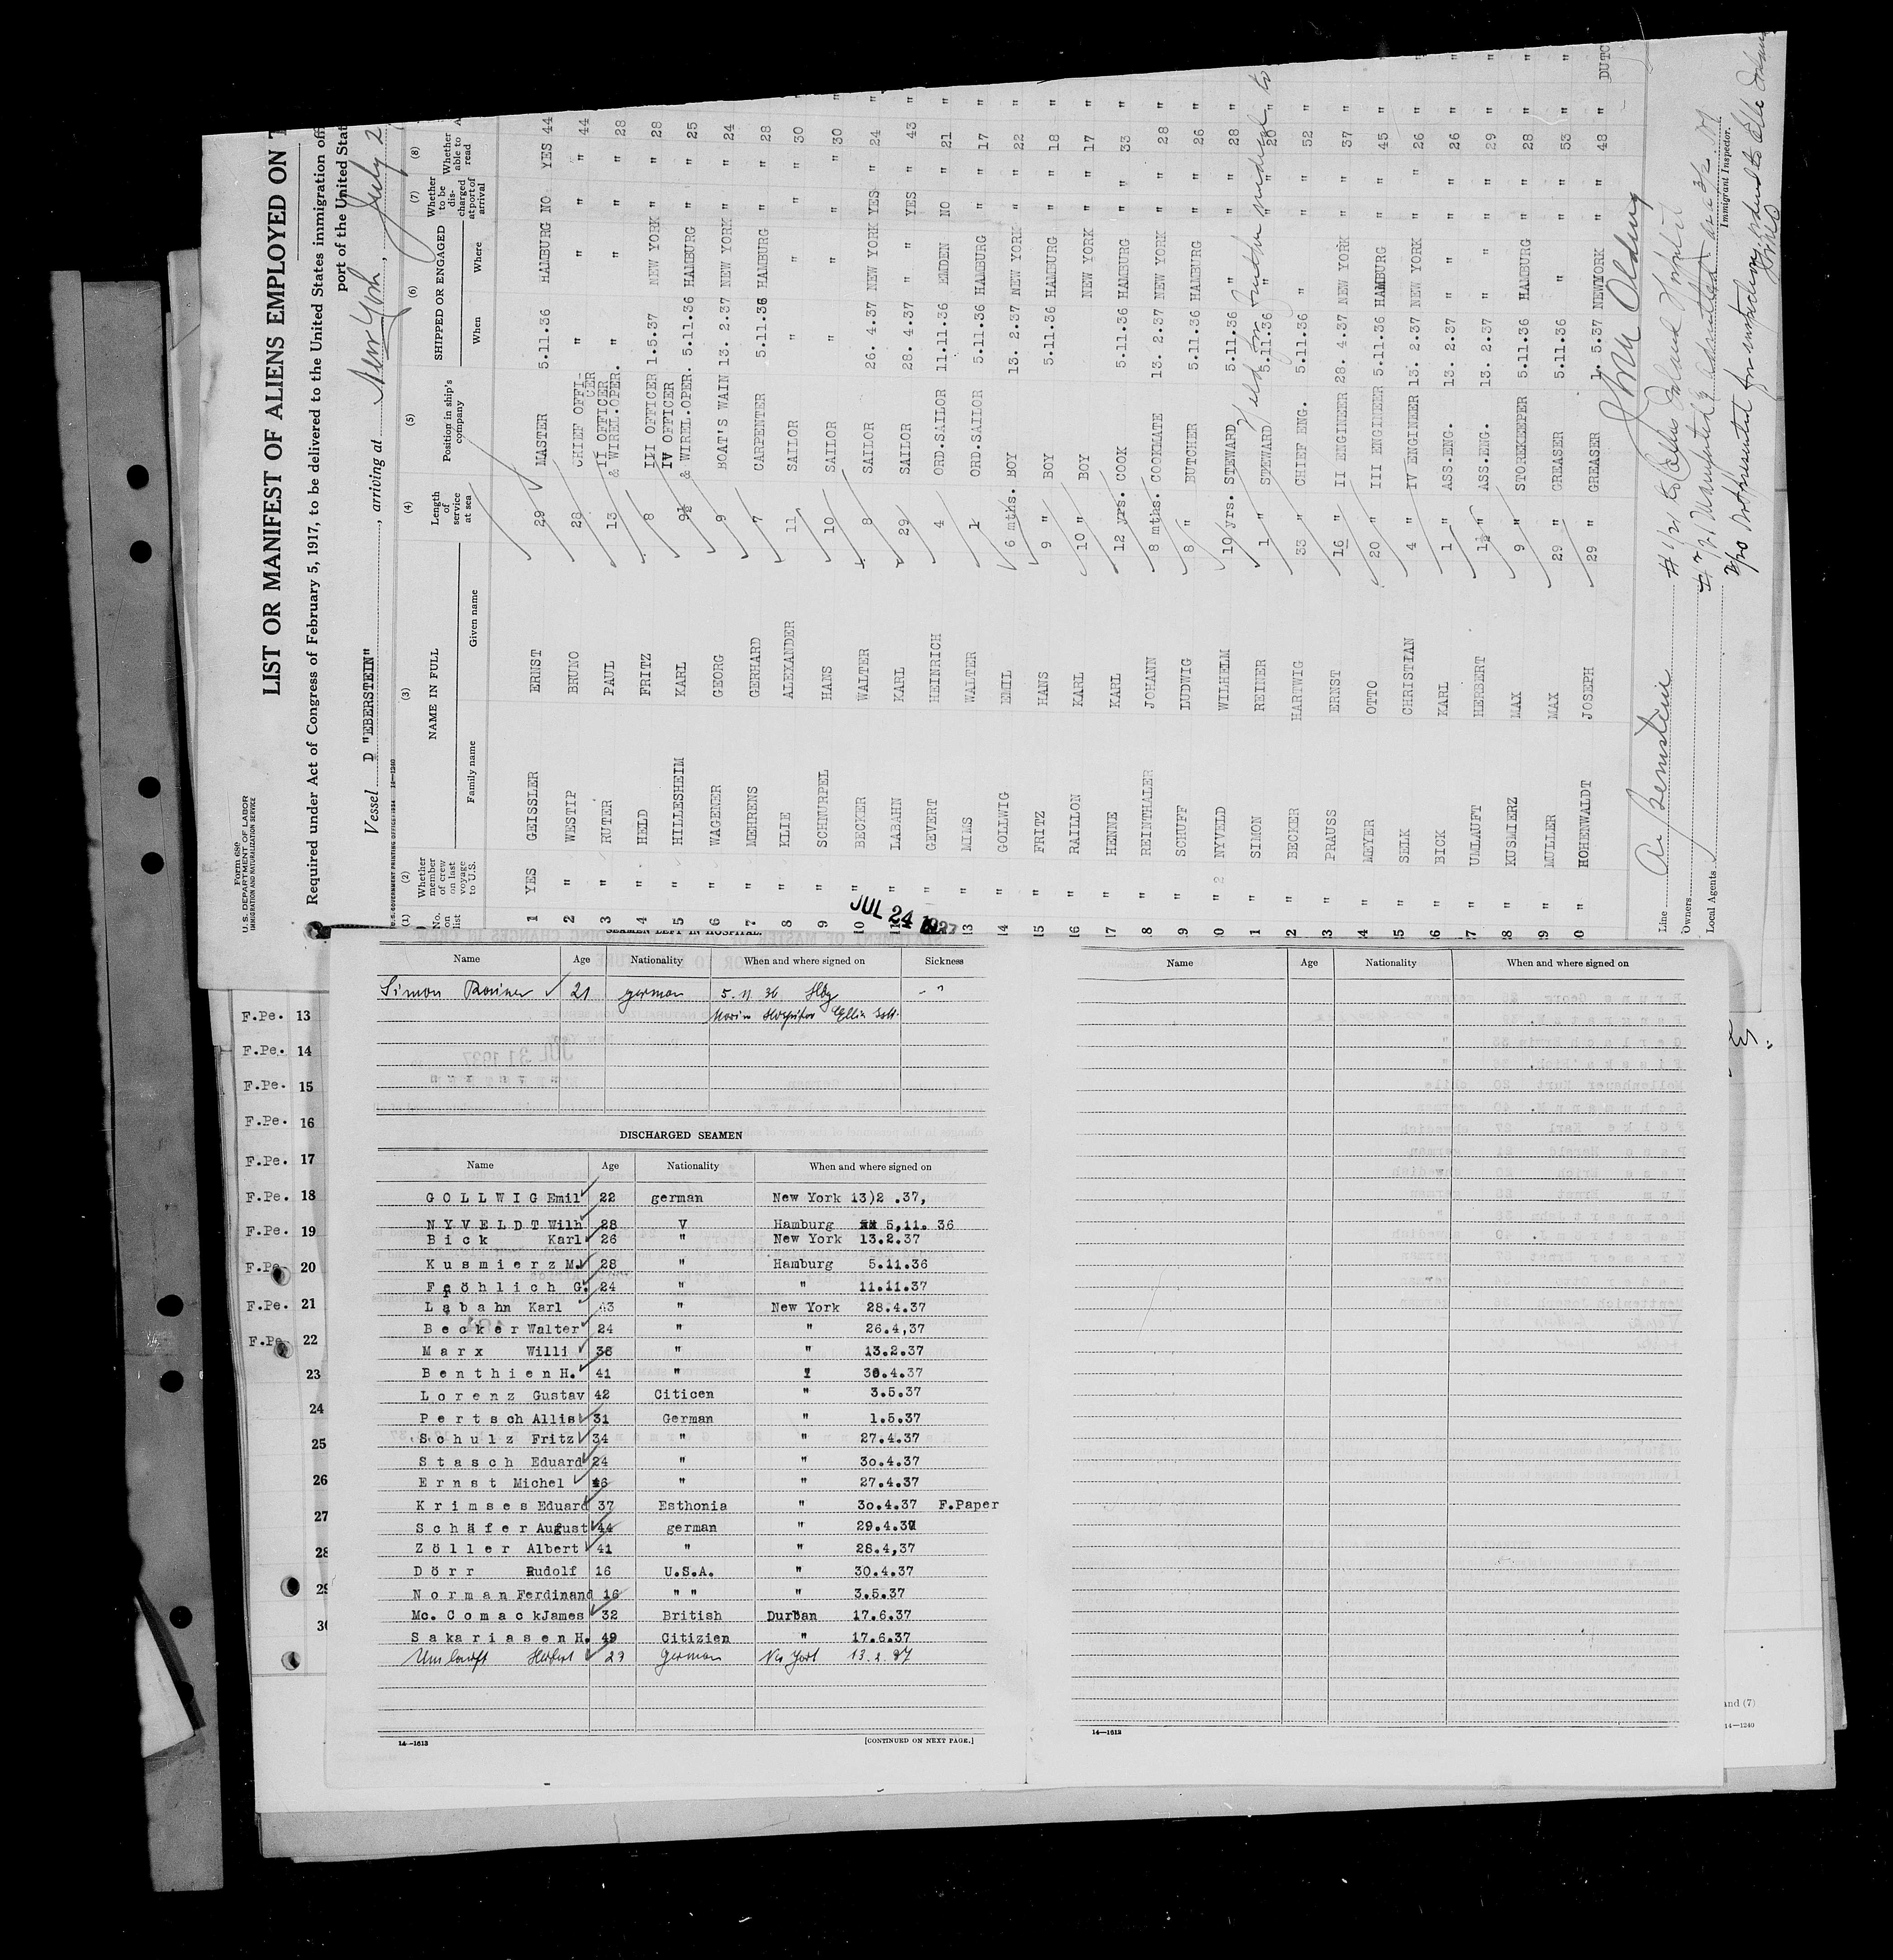 Form 689
U. S. DEPARTMENT OF LABOR
IMMIGRATION AND NATURALIZATION SERVICE
LIST OR MANIFEST OF ALIENS EMPLOYED ON
Required under Act of Congress of February 5, 1917, to be delivered to the United States immigration
port of the United
Vessel D "EBERSTEIN", arriving at New York, July 2
(1) (2) (3) (4) (5) (6) (7) (8)
No. on list Whether member of crew on last voyage to U.S. NAME IN FULL Family name Given name Length of service at sea Position in ship's company SHIPPED OR ENGAGED When Where Whether to be discharged at port of arrival Whether able to read
1 YES GEISSLER ERNST 29 MASTER 5.11.36 HAMBURG NO YES 44
2 " WESTIP BRUNO 28 CHIEF OFFI-CER " " " " 44
3 " RUTER PAUL 13 II OFFICER & WIREL.OPER. " " " " 28
4 " HELD FRITZ 8 III OFFICER 1.5.37 NEW YORK " " 28
5 " HILLESHEIM KARL 9½ IV OFFICER & WIREL.OPER. 5.11.36 HAMBURG " " 25
6 " WAGENER GEORG 9 BOAT'S WAIN 13. 2.37 NEW YORK " " 24
7 " MEHRENS GERHARD 7 CARPENTER 5.11.36 HAMBURG " " 28
8 " KLIE ALEXANDER 11 SAILOR " " " " 30
9 " SCHNURPEL HANS 10 SAILOR " " " " 30
10 " BECKER WALTER 8 SAILOR 26. 4.37 NEW YORK YES " 24
11 " LABAHN KARL 29 SAILOR 28. 4.37 " YES " 43
" GEVERT HEINRICH 4 ORD.SAILOR 11.11.36 EMDEN NO " 21
13 " MIMS WALTER 1 ORD.SAILOR 5.11.36 HAMBURG " " 17
14 " GOLLWIG EMIL 6 mths. BOY 13. 2.37 NEW YORK " " 22
15 " FRITZ HANS 9 " BOY 5.11.36 HAMBURG " " 18
16 " RAILLON KARL 10 " BOY NEW YORK " " 17
17 " HENNE KARL 12 yrs. COOK 5.11.36 HAMBURG " " 33
8 " REINTHALER JOHANN 8 mths. COOKMATE 13. 2.37 NEW YORK " " 28
9 " SCHUFF LUDWIG 8 " BUTCHER 5.11.36 HAMBURG " " 26
0 " NYVELD WILHELM 10 yrs. STEWARD 5.11.36 " " " 28
1 " SIMON REINER 1 " STEWARD 5.11.36 " " " 20
2 " BECKER HARTWIG 33 " CHIEF ENG. 5.11.36 " " " 52
3 " PRAUSS ERNST 16 " II ENGINEER 28. 4.37 NEW YORK " " 37
4 " MEYER OTTO 20 " III ENGINEER 5.11.36 HAMBURG " " 45
5 " SELK CHRISTIAN 4 " IV ENGINEER 13. 2.37 NEW YORK " " 26
6 " BICK KARL 1 " ASS.ENG. 13. 2.37 " " " 26
7 " UMLAUFT HERBERT 1½ " ASS.ENG. 13. 2.37 " " " 29
8 " KUSMIERZ MAX 9 " STOREKEEPER 5.11.36 HAMBURG " " 28
9 " MULLER MAX 29 " GREASER 5.11.36 " " " 53
0 " HOHENWALDT JOSEPH 29 " GREASER 1. 5.37 NEWYORK " " 48 " DUTC
JUL 24 1937
Line
Owners
Local Agents
Immigrant Inspector.
SEAMEN LEFT IN HOSPITAL.
Name Age Nationality When and where signed on Sickness
Simon Reiner 21 german 5. 11 36 Hbg
DISCHARGED SEAMEN
Name Age Nationality When and where signed on
GOLLWIG Emil 22 german New York 13)2 .37,
NYVELDT Wilh 28 V Hamburg 5,11. 36
Bick Karl 26 " New York 13.2.37
Kusmierz M. 28 " Hamburg 5.11.36
Fröhlich G. 24 " " 11.11.37
Labahn Karl 43 " New York 28.4.37
Becker Walter 24 " " 26.4,37
Marx Willi 38 " " 13.2.37
Benthien H. 41 " " 30.4.37
Lorenz Gustav 42 Citicen " 3.5.37
Pertsch Allis 31 German " 1.5.37
Schulz Fritz 34 " " 27.4.37
Stasch Eduard 24 " " 30.4.37
Ernst Michel 46 " " 27.4.37
Krimses Eduard 37 Esthonia " 30.4.37 F.Paper
Schäfer August 44 german " 29.4.37
Zöller Albert 41 " " 28.4,37
Dörr Rudolf 16 U.S.A. " 30.4.37
Norman Ferdinand 16 " " " 3.5.37
Mc. Comack James 32 British Durban 17.6.37
Sakariasen H. 49 Citizien " 17.6.37
Umlauft Herbert 29 german New York 13.2.37
14—1613
[CONTINUED ON NEXT PAGE.]
Name Age Nationality When and where signed on
14—1613
F.Pe. 13
F.Pe. 14
F.Pe. 15
F.Pe. 16
F.Pe. 17
F.Pe. 18
F.Pe. 19
F.Pe. 20
F.Pe. 21
F.Pe. 22
23
24
25
26
27
28
29
and (7)
14—1240